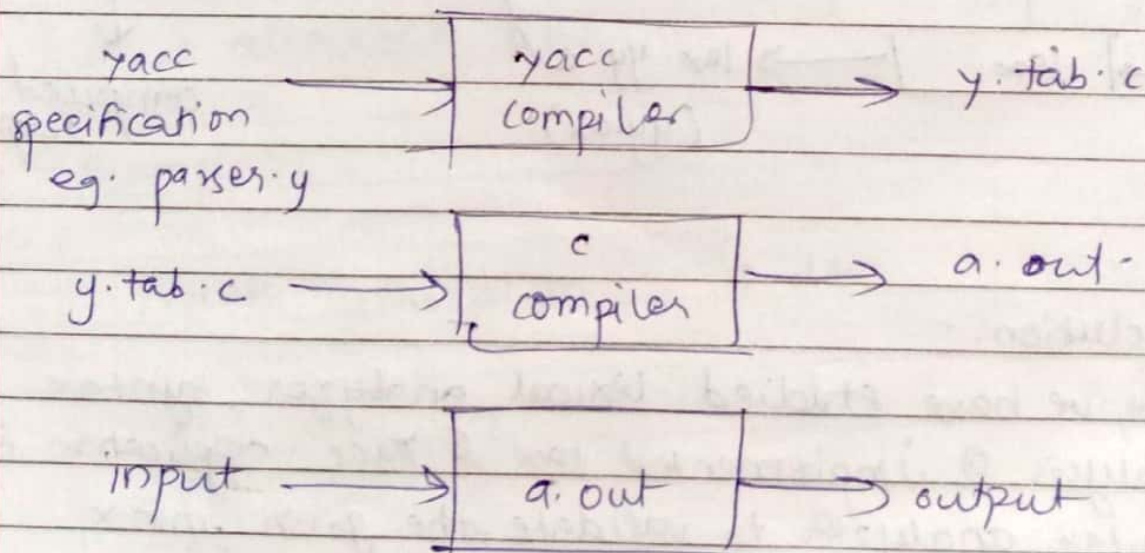 yacc specification eg. parser.y
yacc compiler
y.tab.c
y.tab.c
c compiler
a.out
input
a.out
output